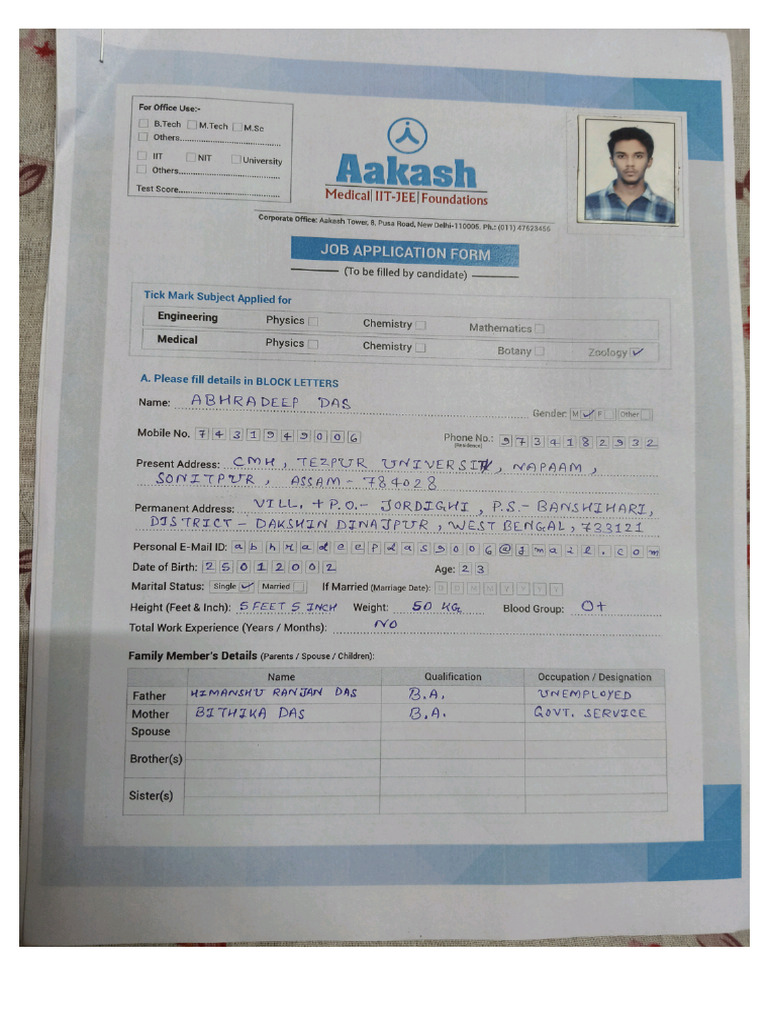 For Office Use:-
B.Tech M.Tech M.Sc
Others
IIT NIT University
Others
Test Score
Aakash
Medical|IIT-JEE|Foundations
Corporate Office: Aakash Tower, 8, Pusa Road, New Delhi-110005. Ph.: (011) 47623456
JOB APPLICATION FORM
(To be filled by candidate)
Tick Mark Subject Applied for
Engineering Physics Chemistry Mathematics
Medical Physics Chemistry Botany Zoology ✓
A. Please fill details in BLOCK LETTERS
Name: ABHRADEEP DAS Gender: M ✓ F Other
Mobile No. 7431949006 Phone No.: (Residence) 9734182932
Present Address: CMH, TEZPUR UNIVERSITY, NAPAAM,
SONITPUR, ASSAM - 784028
Permanent Address: VILL. + P.O.- JORDIGHI, P.S.- BANSHIHARI,
DISTRICT - DAKSHIN DINAJPUR, WEST BENGAL, 733121
Personal E-Mail ID: abhradeepdas9006@gmail.com
Date of Birth: 25012002 Age: 23
Marital Status: Single ✓ Married If Married (Marriage Date): D D M M Y Y Y Y
Height (Feet & Inch): 5 FEET 5 INCH Weight: 50 KG Blood Group: O+
Total Work Experience (Years / Months): NO
Family Member's Details (Parents / Spouse / Children):
Name Qualification Occupation / Designation
Father HIMANSHU RANJAN DAS B.A. UNEMPLOYED
Mother BITHIKA DAS B.A. GOVT. SERVICE
Spouse
Brother(s)
Sister(s)